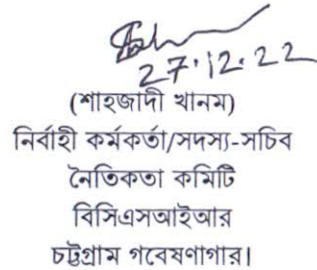 27.12.22
(শাহজাদী খানম)
নির্বাহী কর্মকর্তা/সদস্য-সচিব
নৈতিকতা কমিটি
বিসিএসআইআর
চট্টগ্রাম গবেষণাগার।